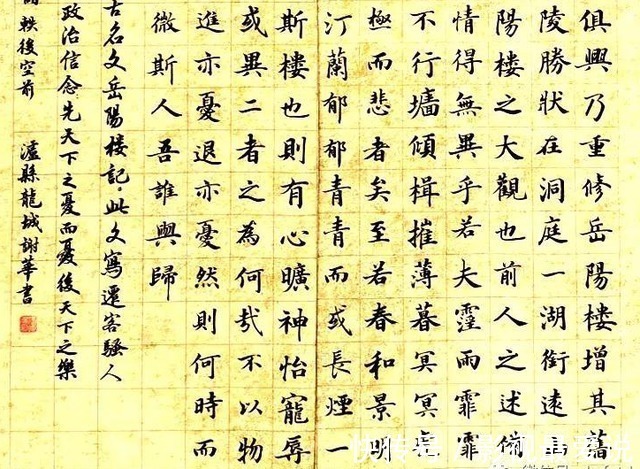 俱興乃重修岳陽樓增其舊
陵勝狀在洞庭一湖銜遠
陽樓之大觀也前人之述備
情得無異乎若夫霪雨霏霏
不行墻傾楫摧薄暮冥冥
極而悲者矣至若春和景
汀蘭郁郁青青而或長煙一
斯樓也則有心曠神怡寵辱
或異二者之為何哉不以物
進亦憂退亦憂然則何時而
微斯人吾誰與歸
古名文岳陽樓記，此文寫遷客騷人
政治信念先天下之憂而憂後天下之樂
軼後空前 瀘縣龍城謝華書
快传号